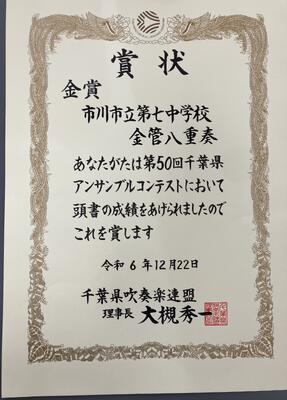 賞状
金賞
市川市立第七中学校
金管八重奏
あなたがたは第50回千葉県
アンサンブルコンテストにおいて
頭書の成績をあげられましたので
これを賞します
令和6年12月22日
千葉県吹奏楽連盟
理事長 大槻秀一